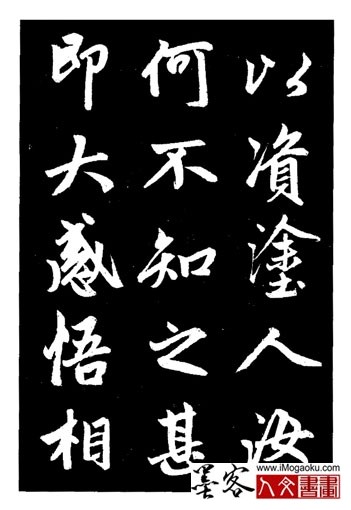 以資塗人汝
何不知之甚
即大感悟相
墨客
www.iMogaoku.com
人文書畫